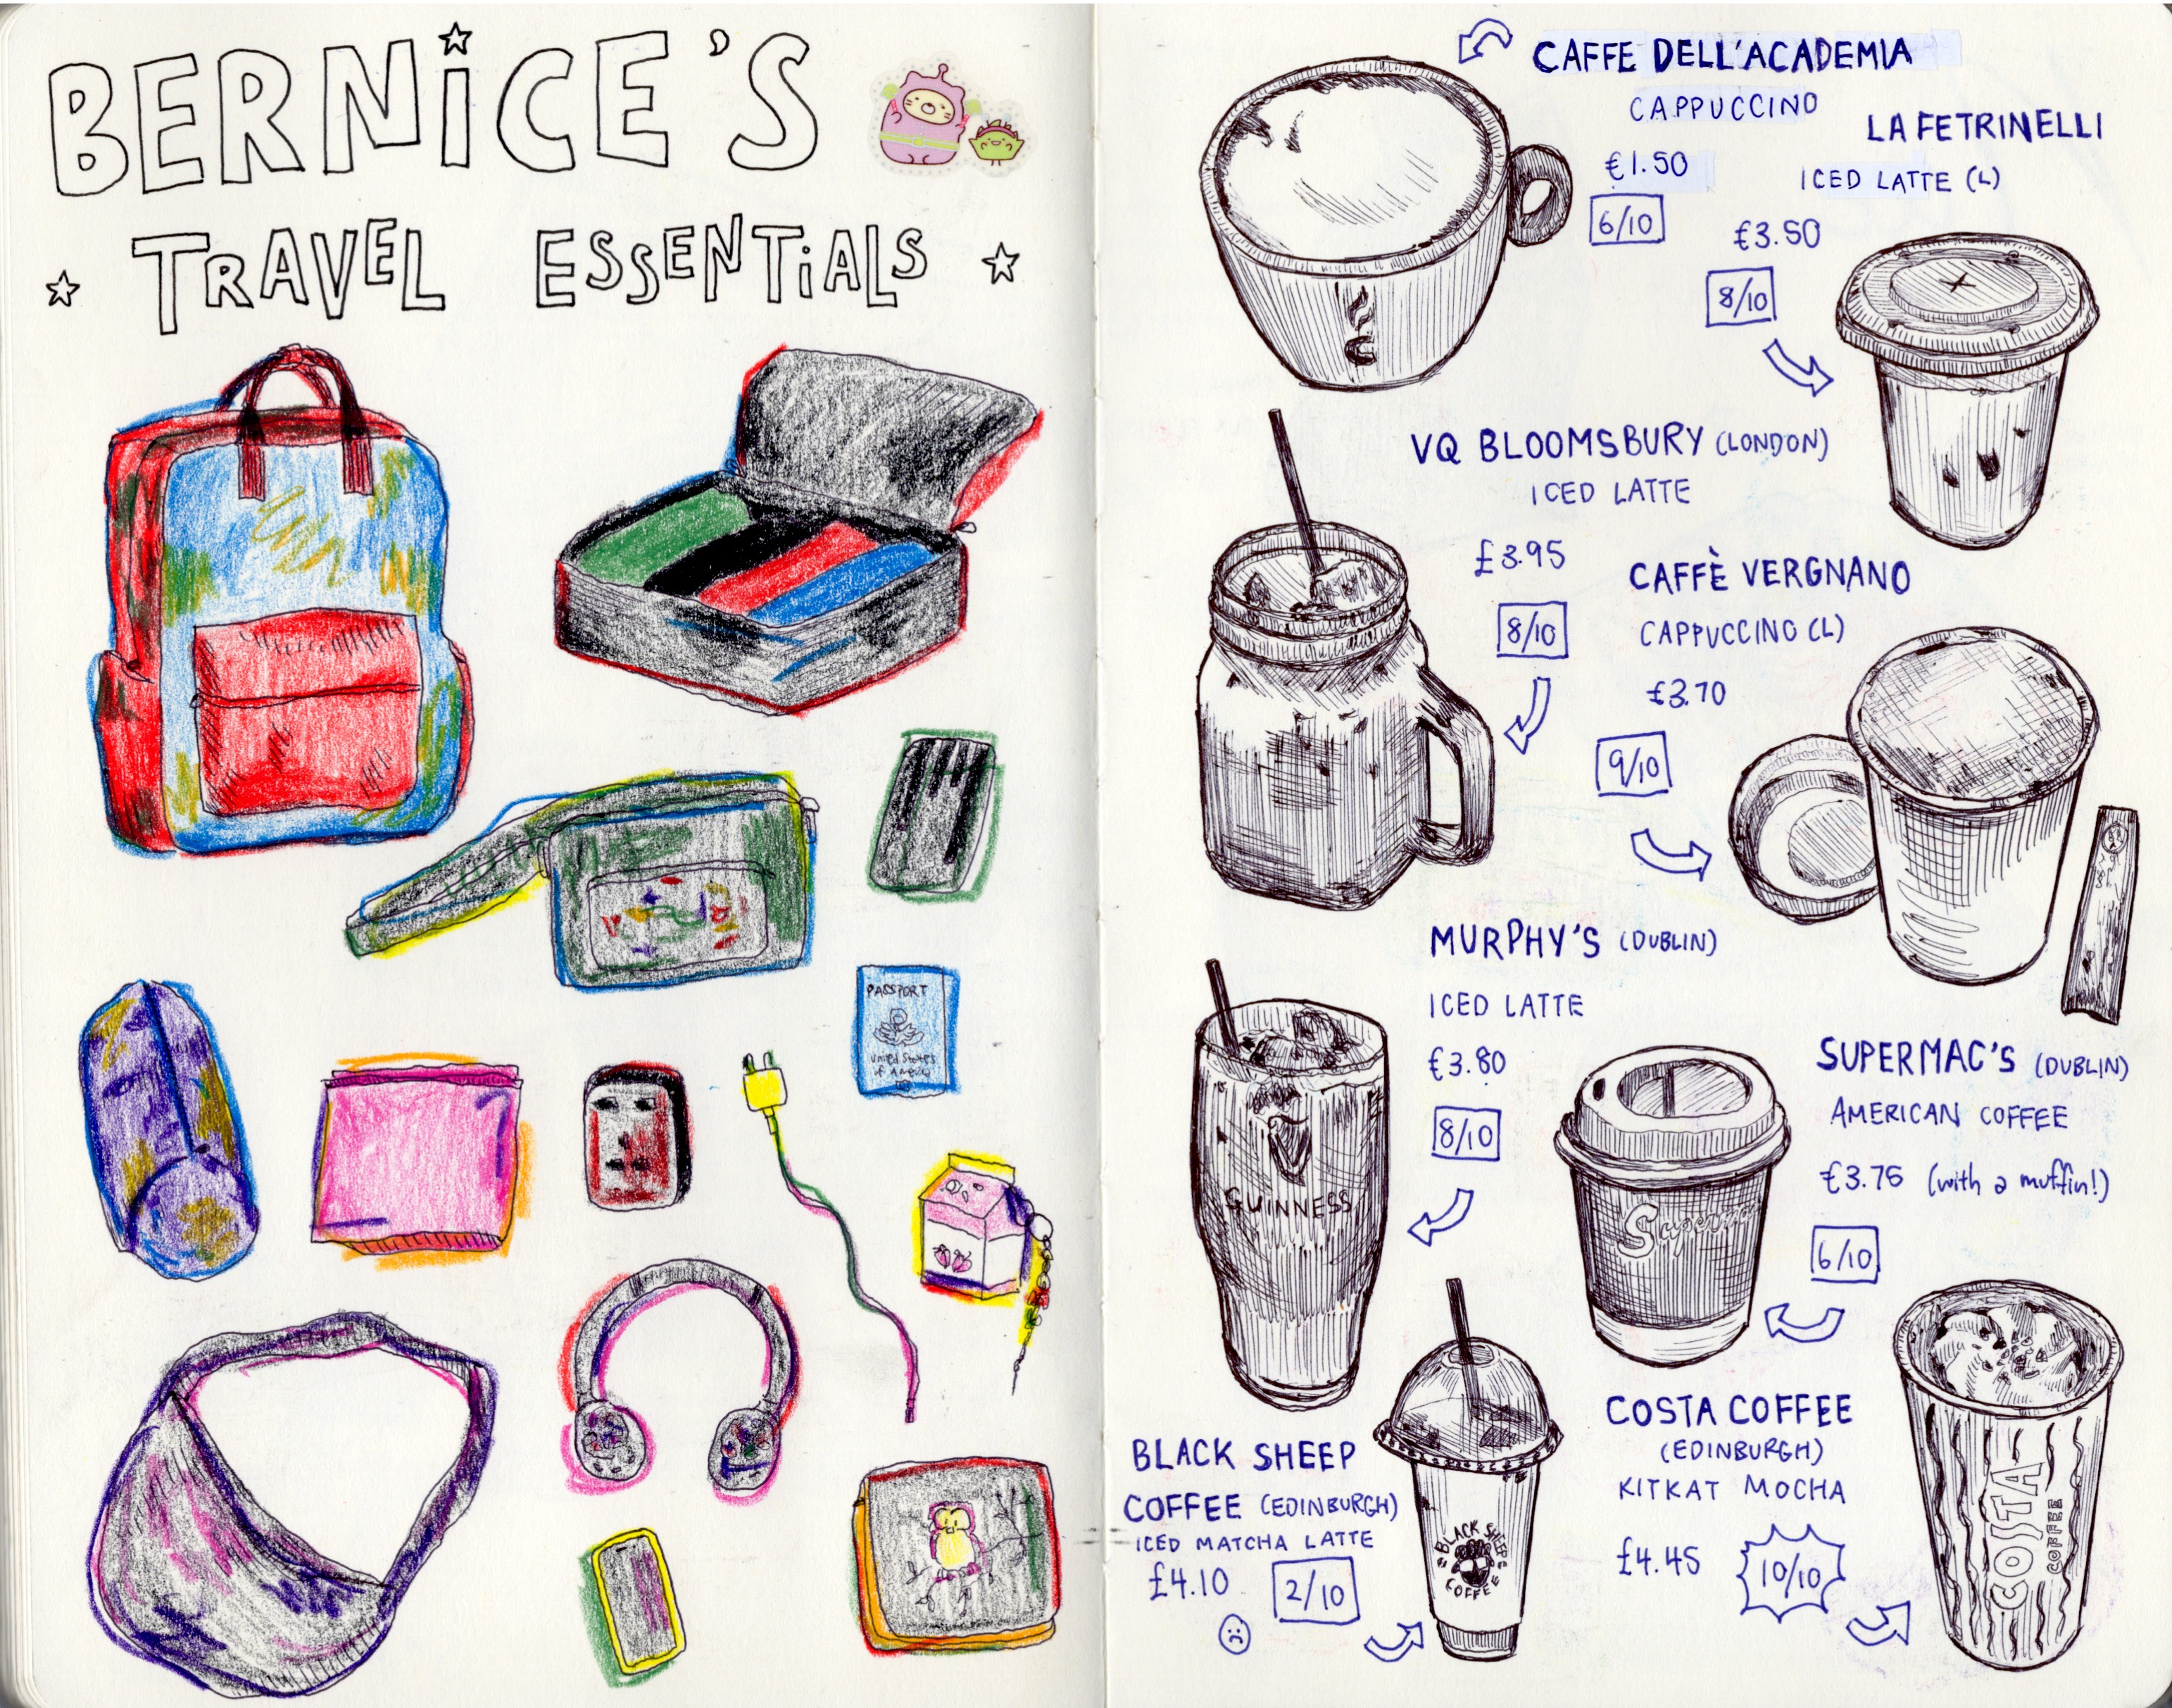 BERNiCE'S
TRAVEL ESSENTiALS
PASSPORT
United States
of America
CAFFE DELL'ACADEMIA
CAPPUCCINO
€1.50
6/10
LA FETRINELLI
ICED LATTE (L)
€3.50
8/10
VQ BLOOMSBURY (LONDON)
ICED LATTE
£3.95
8/10
CAFFÈ VERGNANO
CAPPUCCINO (L)
€3.70
9/10
MURPHY'S (DUBLIN)
ICED LATTE
€3.80
8/10
GUINNESS
SUPERMAC'S (DUBLIN)
AMERICAN COFFEE
€3.75 (with a muffin!)
6/10
BLACK SHEEP
COFFEE (EDINBURGH)
ICED MATCHA LATTE
£4.10
2/10
BLACK SHEEP
COFFEE
COSTA COFFEE
(EDINBURGH)
KITKAT MOCHA
£4.45
10/10
COSTA
COFFEE